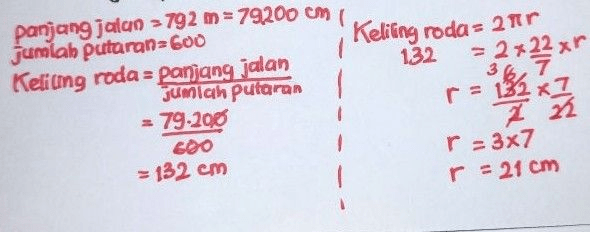 panjang jalan = 792 m = 79.200 cm
jumlah putaran = 600
Keliling roda = panjang jalan
jumlah putaran
= 79.200
600
= 132 cm
Keliling roda = 2πr
132 = 2 × 22/7 × r
3 6
r = 132/2 × 7/22
r = 3×7
r = 21 cm